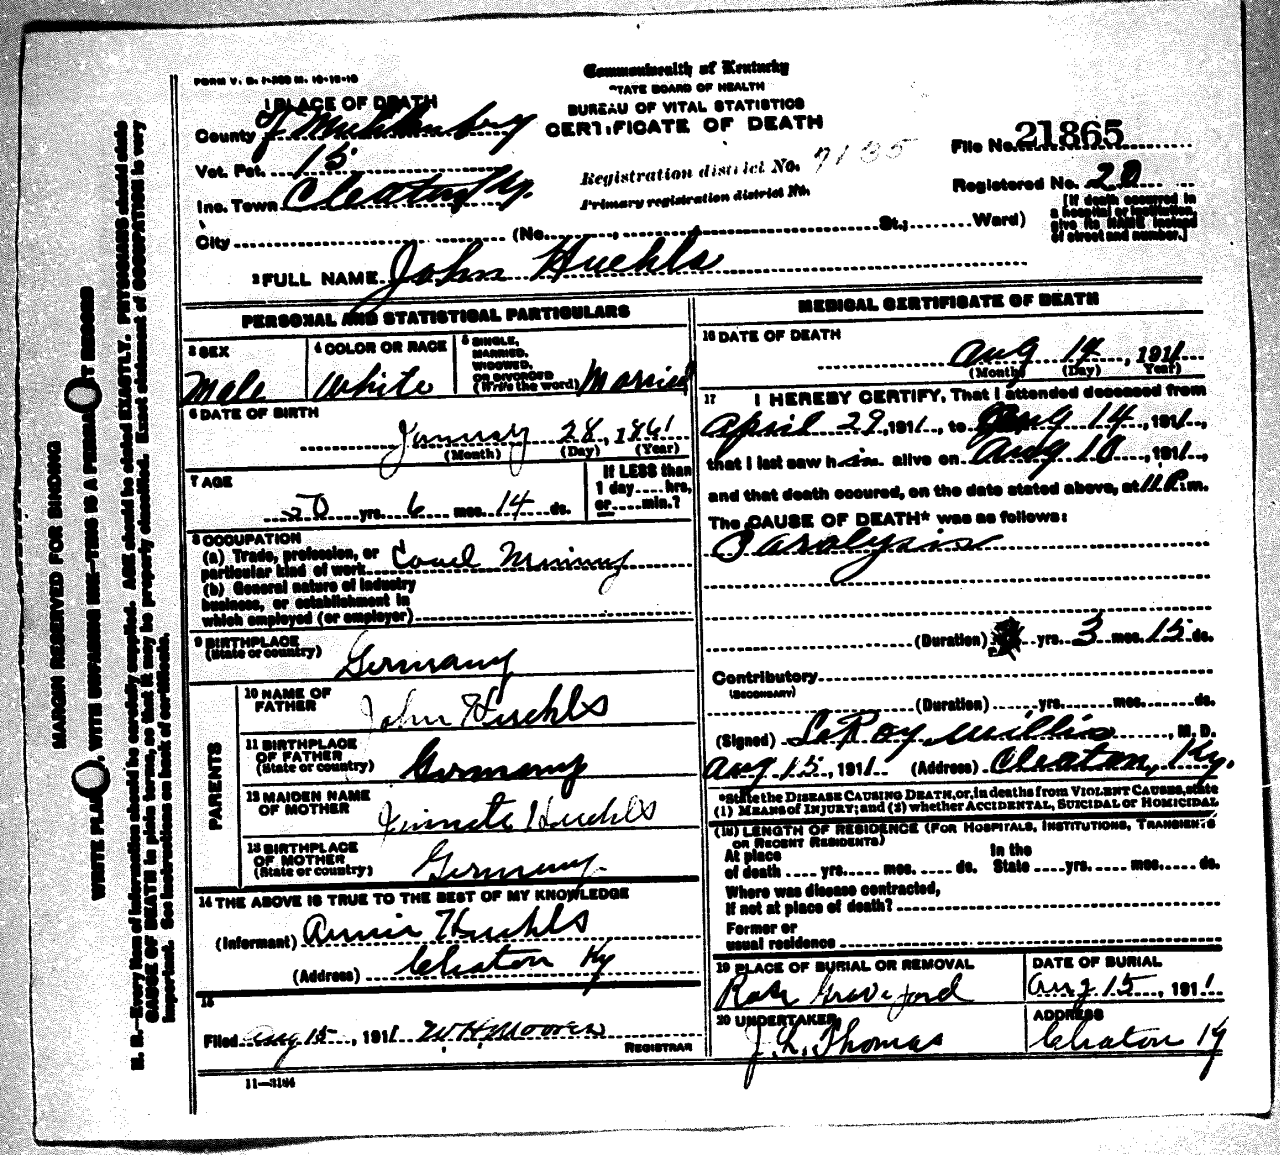 FORM V. S. 1-200 M. 10-12-10
Commonwealth of Kentucky
STATE BOARD OF HEALTH
BUREAU OF VITAL STATISTICS
CERTIFICATE OF DEATH
1 PLACE OF DEATH
County Muhlenberg
Vot. Pct. 15
Inc. Town Cleaton Ky.
City (No. , St.; Ward)
Registration district No. 7135
Primary registration district No.
File No. 21865
Registered No. 20
[If death occurred in
a hospital or institution,
give its NAME instead
of street and number.]
2 FULL NAME John Huehls
PERSONAL AND STATISTICAL PARTICULARS
3 SEX
Male
4 COLOR OR RACE
White
5 SINGLE,
MARRIED,
WIDOWED,
OR DIVORCED
(Write the word) Married
6 DATE OF BIRTH
January 28, 1861
(Month) (Day) (Year)
7 AGE
50 yrs. 6 mos. 14 ds.
If LESS than
1 day....hrs,
or....min.?
8 OCCUPATION
(a) Trade, profession, or
particular kind of work Coael Mining
(b) General nature of industry
business, or establishment in
which employed (or employer)
9 BIRTHPLACE
(State or country) Germany
PARENTS
10 NAME OF
FATHER John Huehls
11 BIRTHPLACE
OF FATHER
(State or country) Germany
12 MAIDEN NAME
OF MOTHER Huehls
13 BIRTHPLACE
OF MOTHER
(State or country) Germany.
14 THE ABOVE IS TRUE TO THE BEST OF MY KNOWLEDGE
(Informant) Annie Huehls
(Address) Cleaton Ky
15
Filed Aug 15, 1911 W H Moores
REGISTRAR
11-3184
MEDICAL CERTIFICATE OF DEATH
16 DATE OF DEATH
Aug 14, 1911
(Month) (Day) Year)
17 I HEREBY CERTIFY, That I attended deceased from
April 29, 1911, to Aug 14, 1911,
that I last saw him alive on Aug 10, 1911,
and that death occured, on the date stated above, at 11 P.m.
The CAUSE OF DEATH* was as follows:
Paralysis
(Duration) yrs. 3 mos. 15 ds.
Contributory
(SECONDARY)
(Duration) yrs. mos. ds.
(Signed) LeRoy Willis, M. D.
Aug 15, 1911 (Address) Cleaton, Ky.
*State the DISEASE CAUSING DEATH, or, in deaths from VIOLENT CAUSES, state
(1) MEANS of INJURY; and (2) whether ACCIDENTAL, SUICIDAL or HOMICIDAL
(18) LENGTH OF RESIDENCE (FOR HOSPITALS, INSTITUTIONS, TRANSIENTS
OR RECENT RESIDENTS)
At place
of death yrs. mos. ds.
In the
State yrs. mos. ds.
Where was disease contracted,
If not at place of death?
Former or
usual residence
19 PLACE OF BURIAL OR REMOVAL
Rose
DATE OF BURIAL
Aug 15, 1911
20 UNDERTAKER
J. L. Thomas
ADDRESS
Cleaton Ky
MARGIN RESERVED FOR BINDING
WRITE PLAINLY, WITH UNFADING INK—THIS IS A PERMANENT RECORD
N. B.—Every item of information should be carefully supplied. AGE should be stated EXACTLY. PHYSICIANS should state
CAUSE OF DEATH in plain terms, so that it may be properly classified. Exact statement of OCCUPATION is very
important. See instructions on back of certificate.